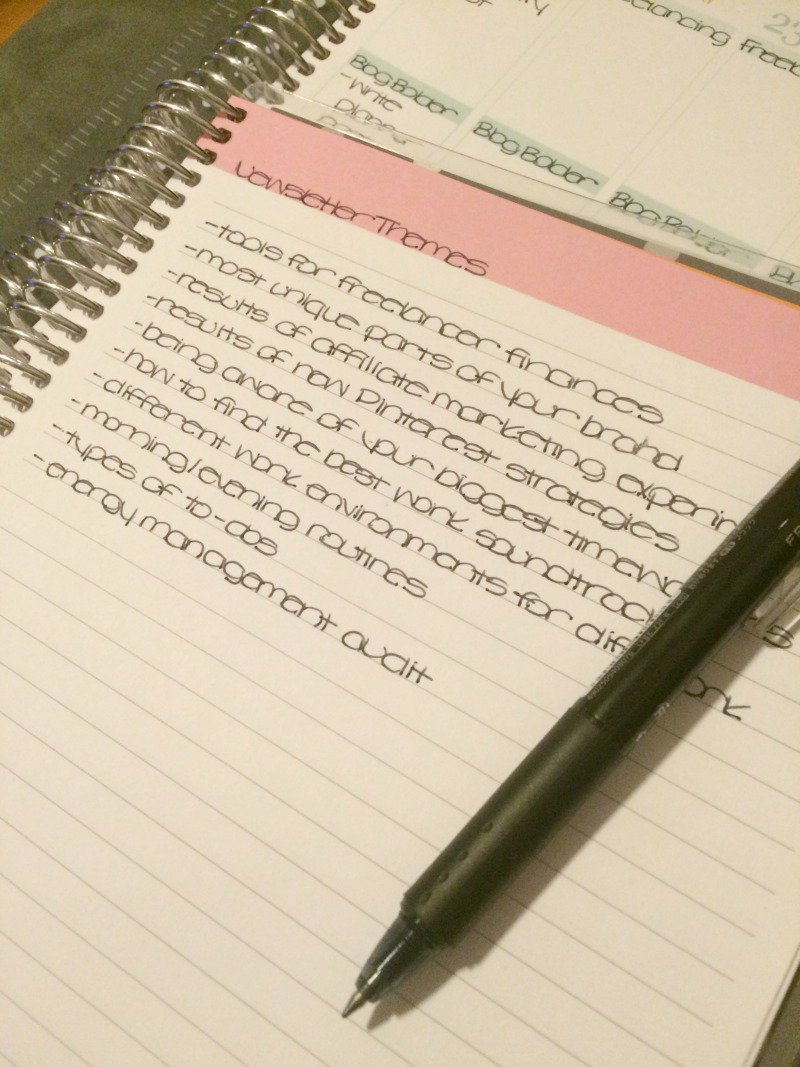 23
elancing freel
Blog Bolder
-Write
Blog Bolder
Blog Bolder
Newsletter Themes
-tools for freelancer finances
-most unique parts of your brand
-results of affiliate marketing experim
-results of new Pinterest strategies
-being aware of your biggest timewa
-how to find the best work soundtrack
-different work environments for diff
ork
-morning/evening routines
-types of to-dos
-energy management audit